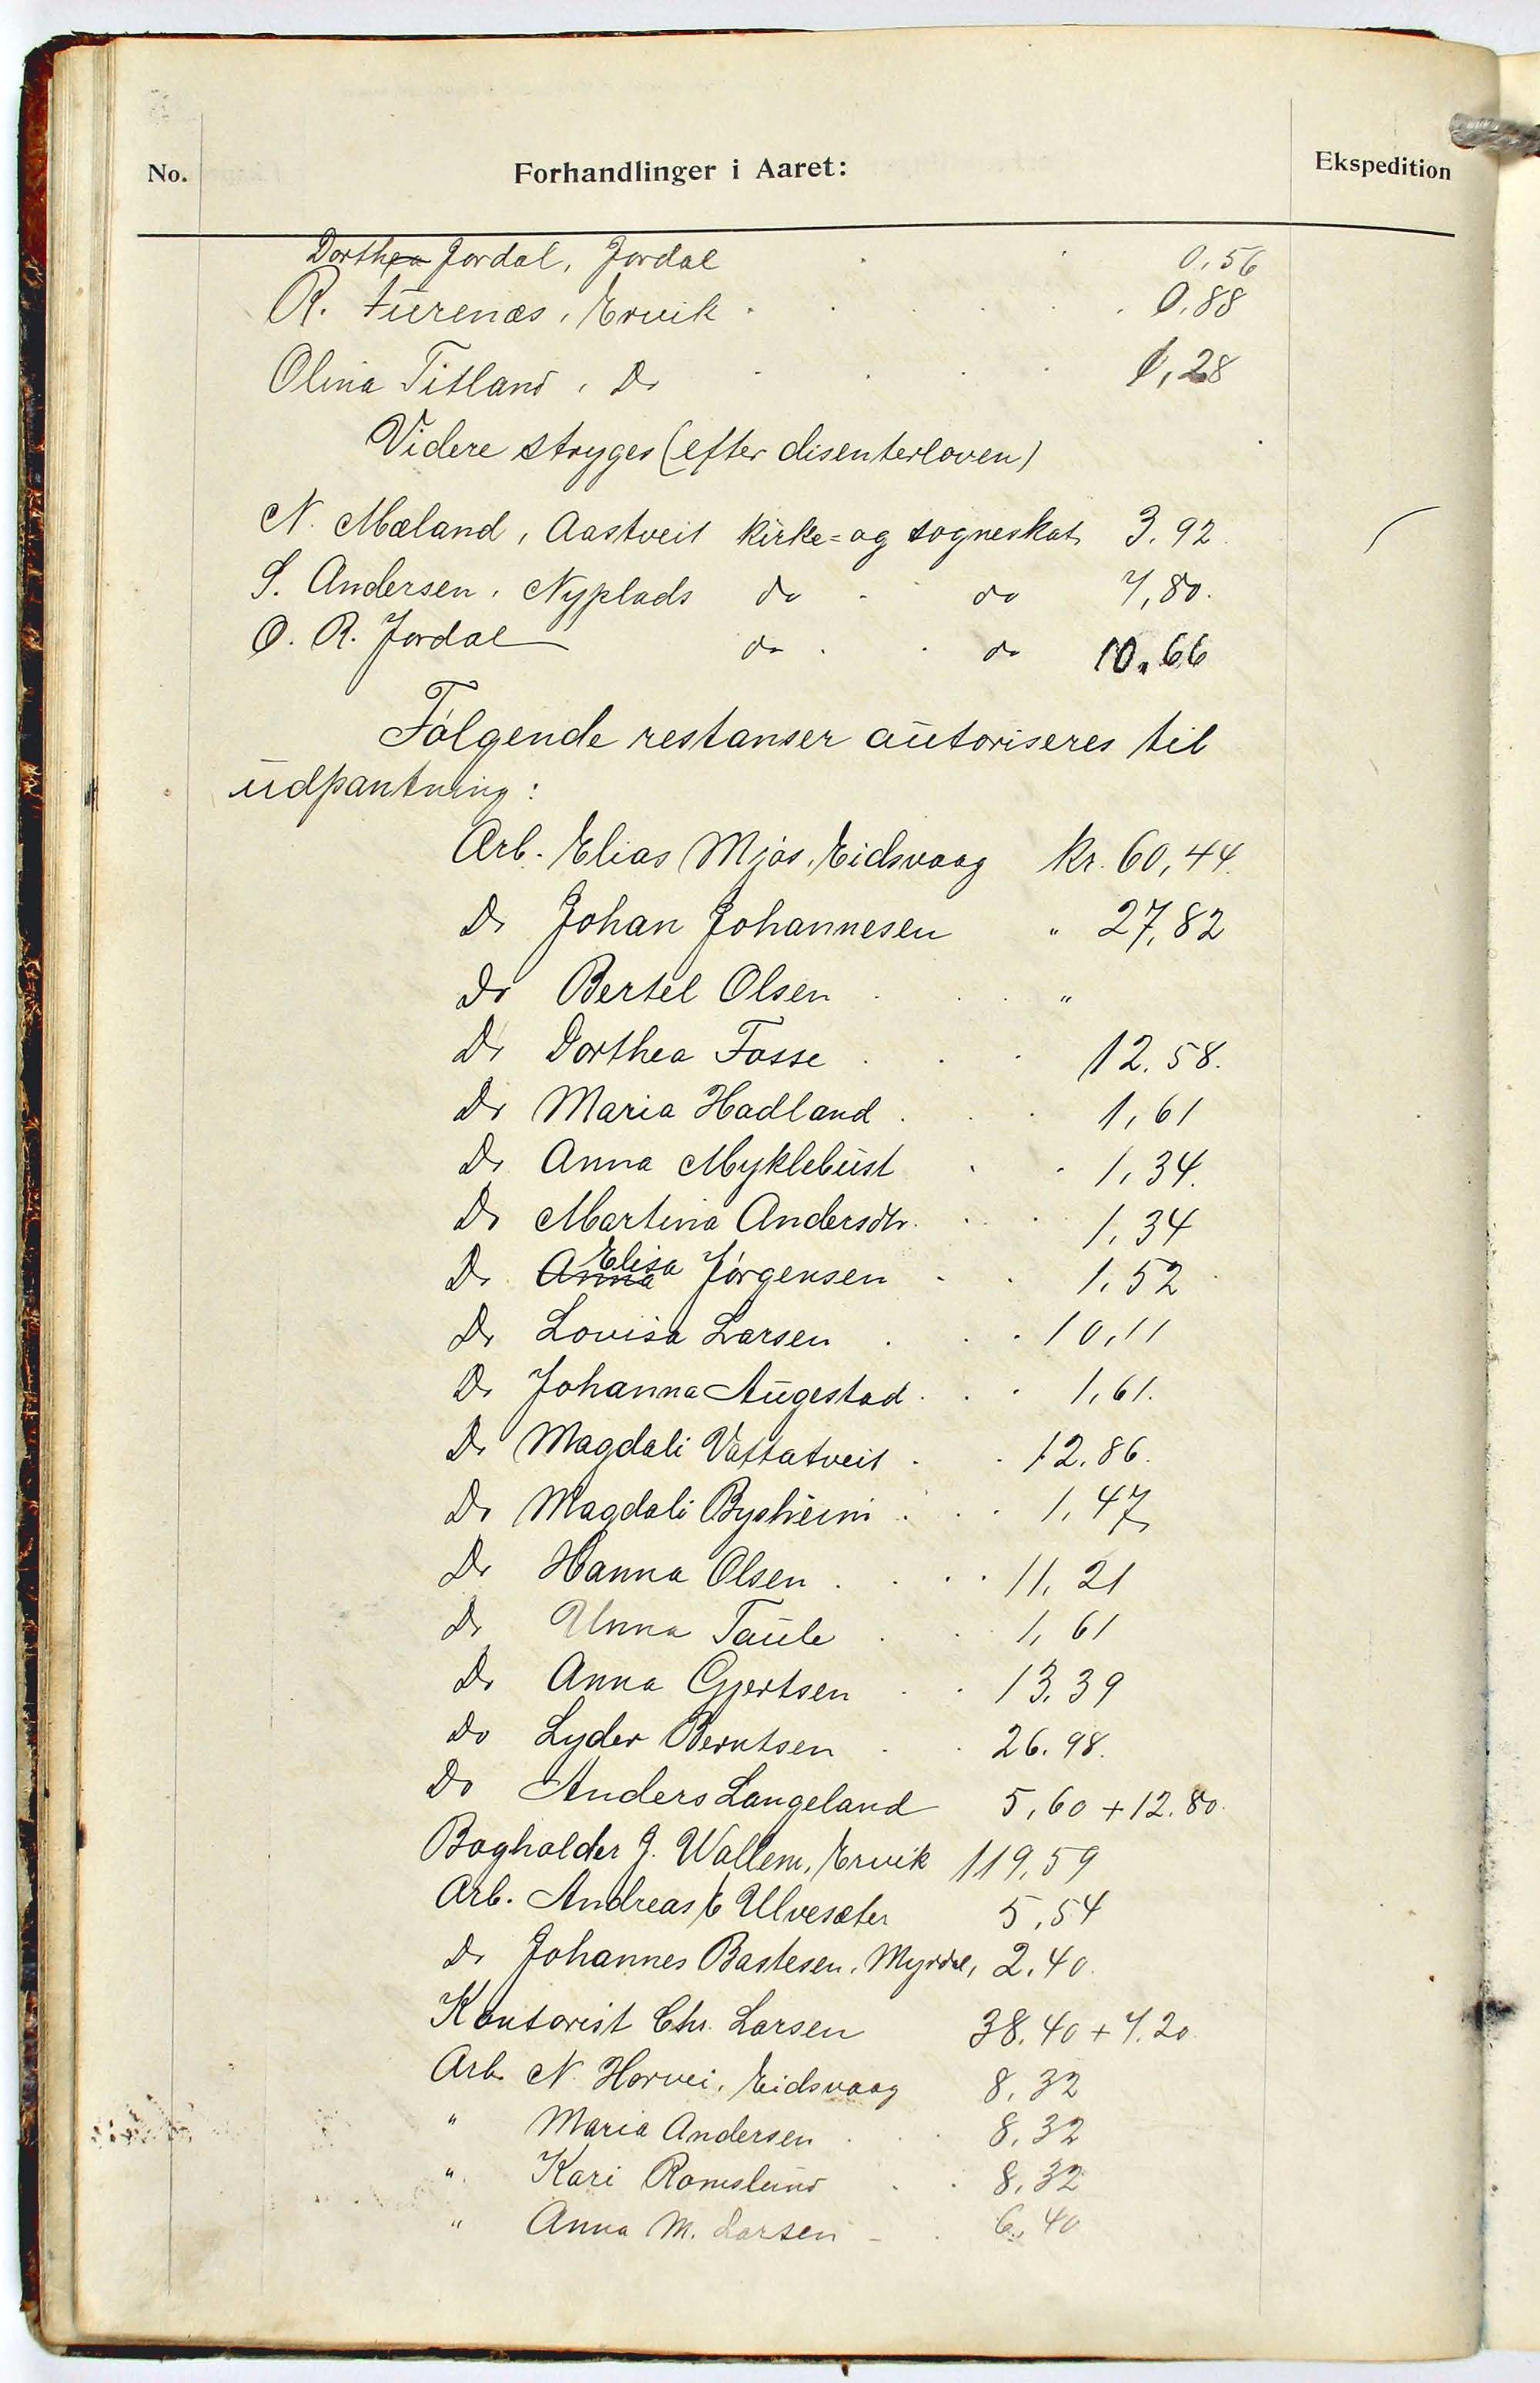 No.
Forhandlinger i Aaret:
Ekspedition
Dorthea Jordal, Jordal 0,56
R. Furenæs, Ervik 0,88
Olina Titland, Do 1,28
Videre stryges (efter disenterloven)
N. Mæland, Aastveit kirke= og sogneskat 3,92
S. Andersen, Nyplads do - do 7,80.
O. R. Jordal do do 10,66
Følgende restanser autoriseres til
udpantning:
Arb. Elias Mjøs, Eidsvaag kr. 60,44
Do Johan Johannesen " 27,82
Do Bertel Olsen "
Do Dorthea Fosse 12.58.
Do Maria Hadland 1,61
Do Anna Myklebust 1,34.
Do Martina Andersdtr. 1,34
Do Anna Elisa Jørgensen 1,52
Do Lovisa Larsen 10,11
Do Johanna Augestad 1,61.
Do Magdali Vattatveit 12.86.
Do Magdali Bysheim 1,47
Do Hanna Olsen 11,21
Do Unna Taule 1,61
Do Anna Gjertsen 13,39
Do Lyder Berntsen 26.98.
Do Anders Langeland 5,60 + 12.80.
Bogholder J. Wallem, Ervik 119,59
Arb. Andreas E Ulvesæter 5,54
Do Johannes Bastesen, Myrdal, 2,40.
Kontorist Chr. Larsen 38.40 + 7.20.
Arb. N. Horvei, Eidsvaag 8,32
" Maria Andersen 8,32
" Kari Romslund 8,32
" Anna M. Larsen - 6,40